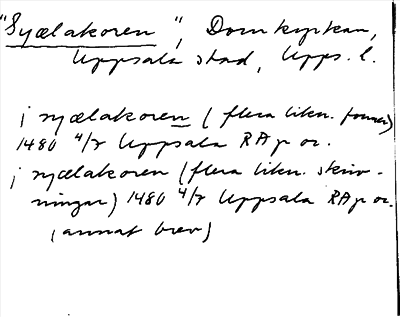 "Syælakoren", Domkyrkan,
Uppsala stad, Upps. l.
i syælakoren (flera likn. former)
1480 4/7 Uppsala RAp or.
i syælakoren (flera likn. skriv-
ningar) 1480 4/7 Uppsala RAp or.
(annat brev)